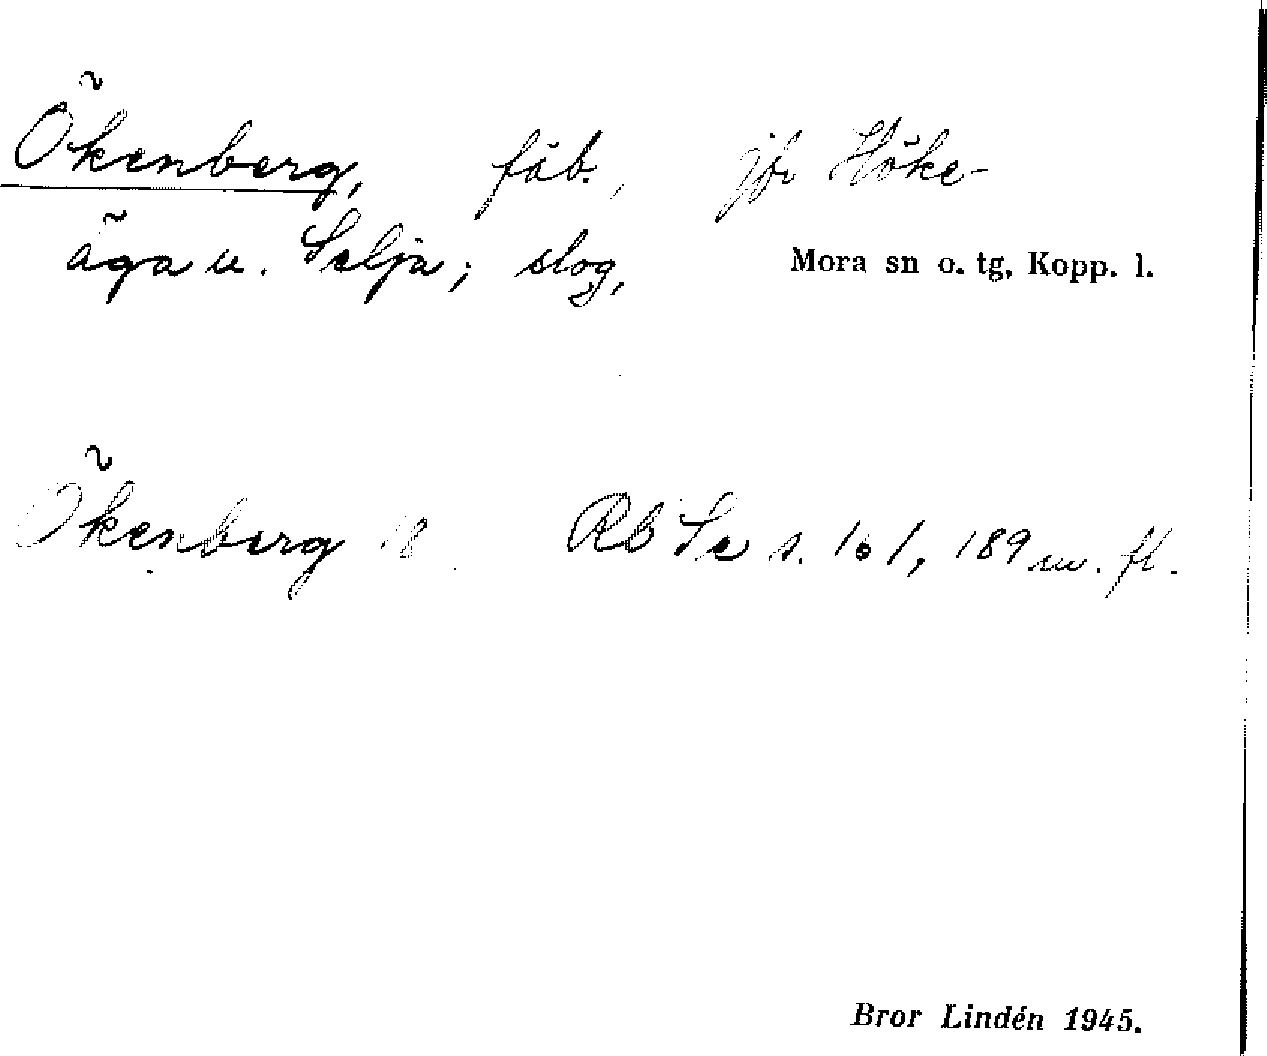 Ökenberg, fäb., jfr Höke-
äga u. Selja; slog,
Mora sn o. tg, Kopp. l.
Ökenberg 18 Rb Se s. 161, 189 m. fl.
Bror Lindén 1945.